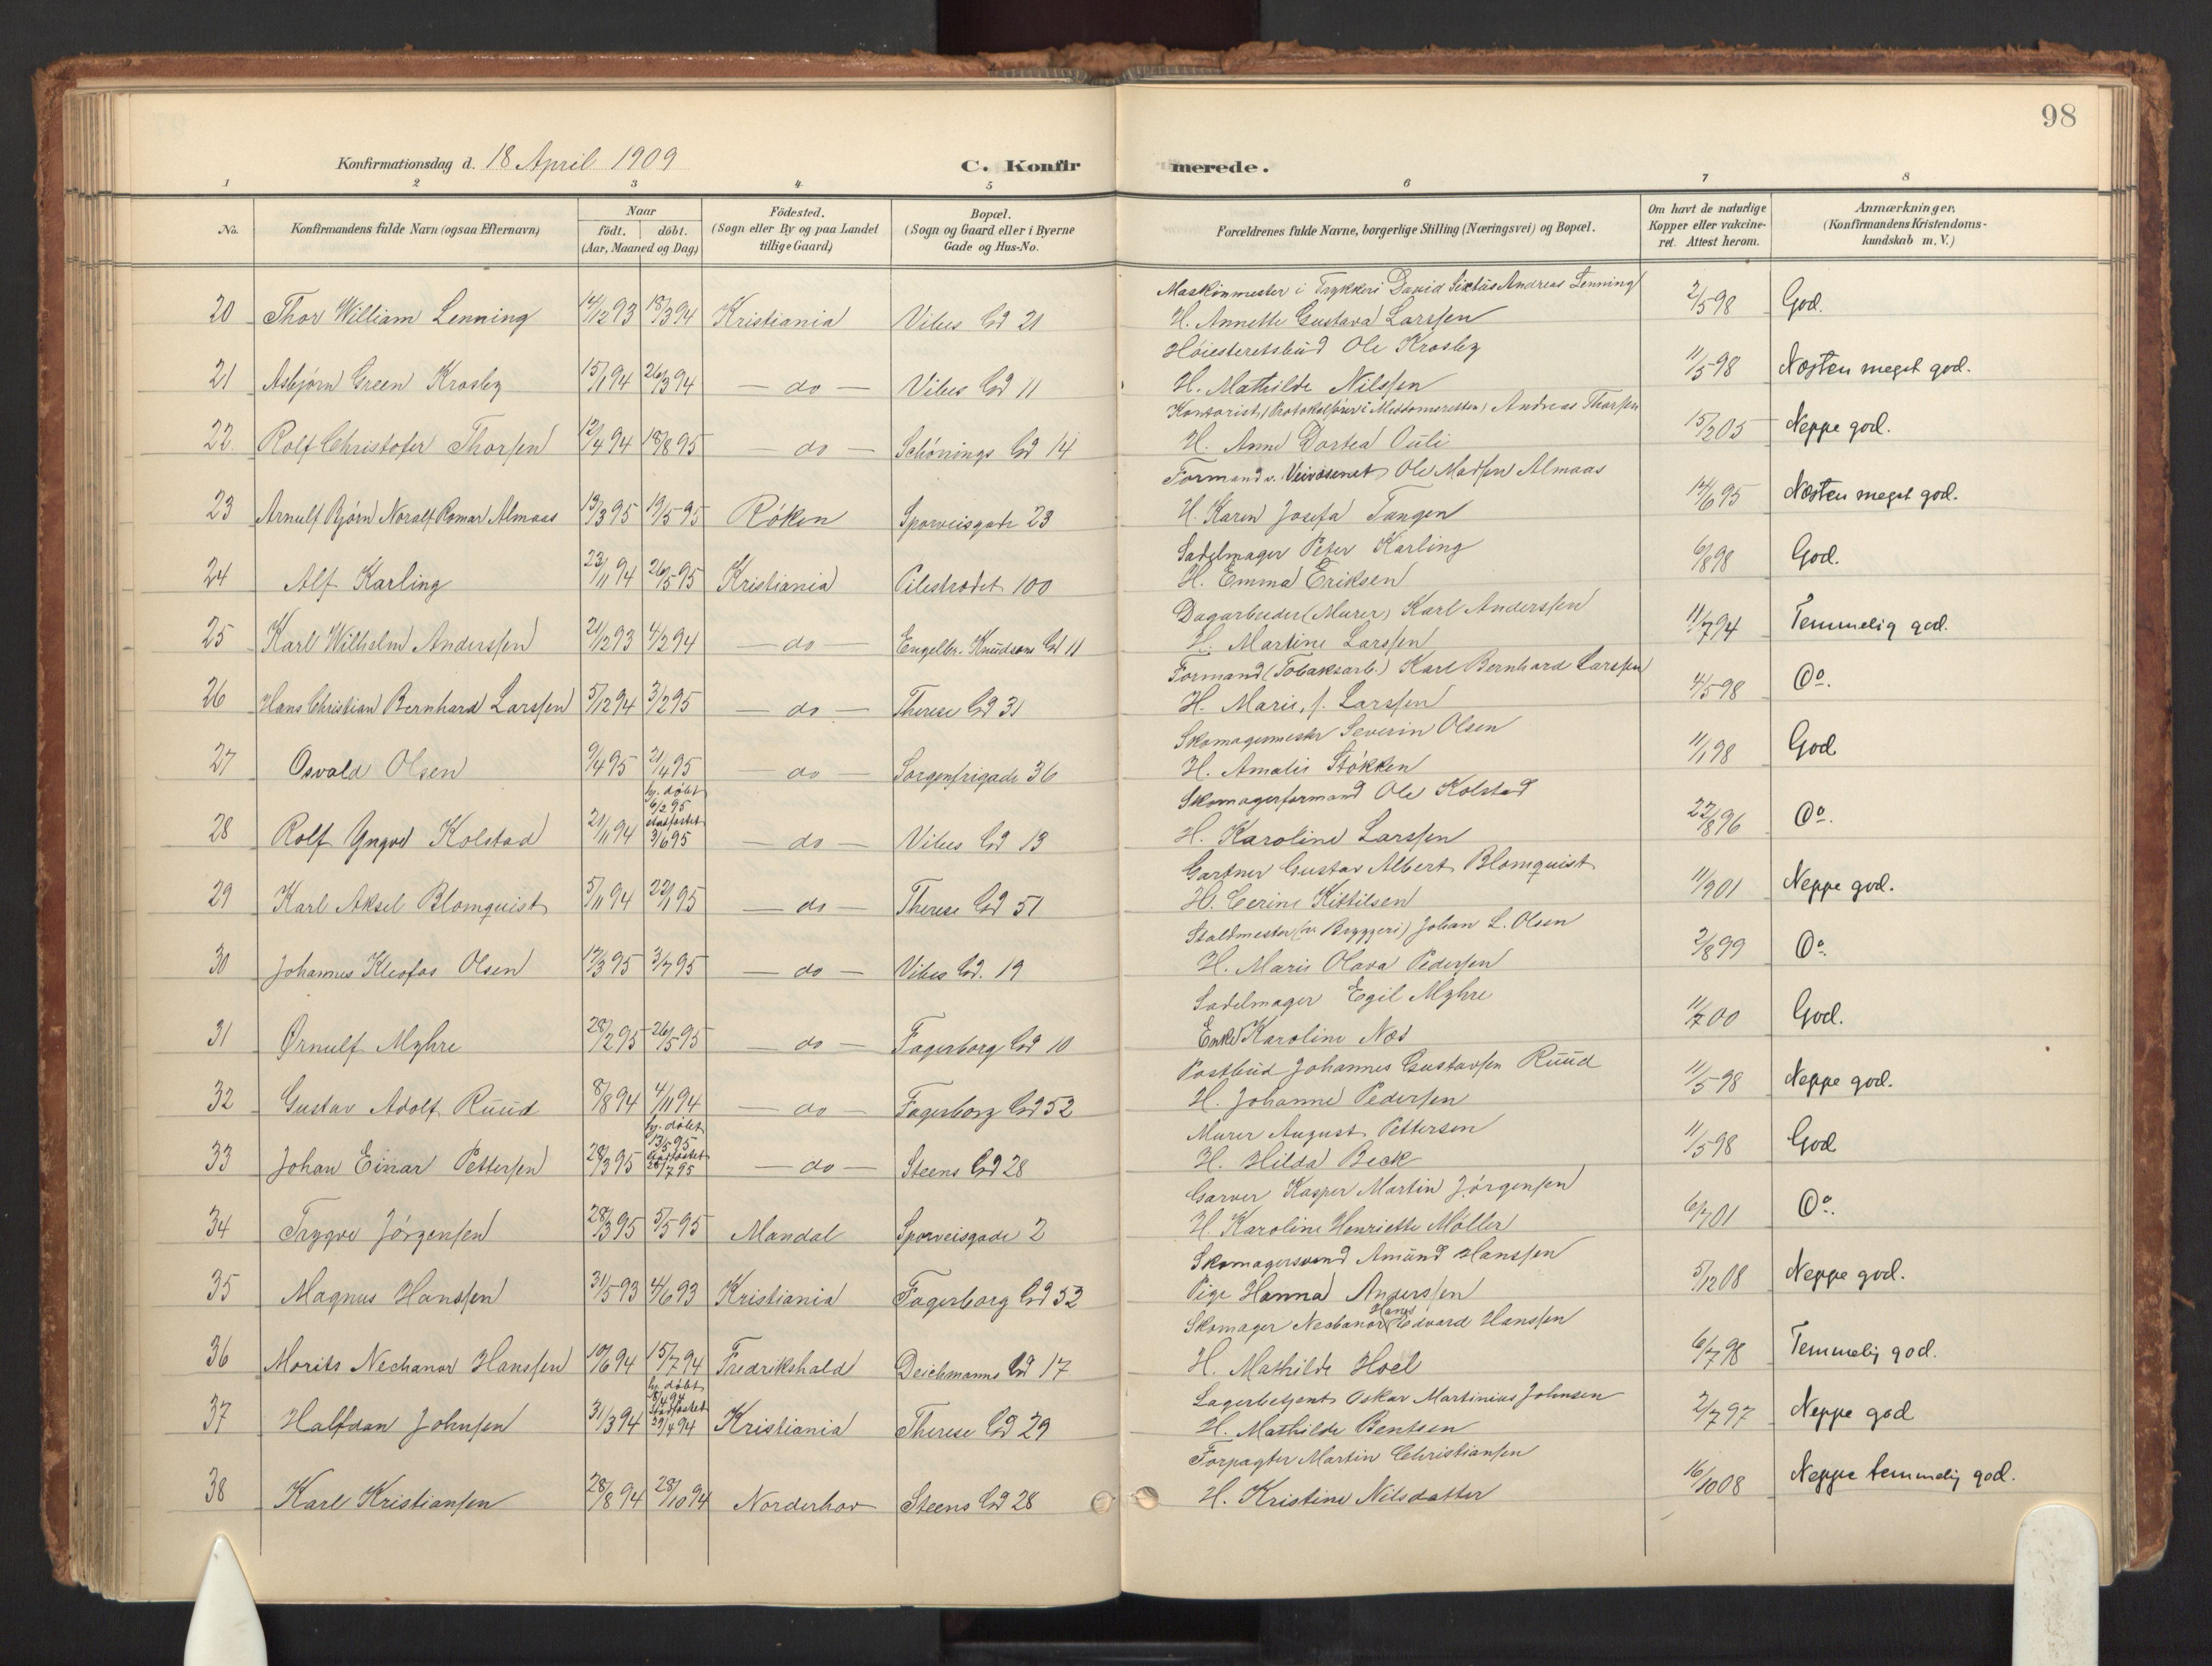 98
Konfirmationsdag d. 18 April 1909
C. Konfirmerede.
1 2 3 4 5 6 7 8
No. Konfirmandens fulde Navn (ogsaa Efternavn) Naar födt. döbt. (Aar, Maaned og Dag) Födested. (Sogn eller By og paa Landet tillige Gaard) Bopæl. (Sogn og Gaard eller i Byerne Gade og Hus-No. Forældrenes fulde Navne, borgerlige Stilling (Næringsvei) og Bopæl. Om havt de naturlige Kopper eller vakcineret. Attest herom. Anmærkninger, (Konfirmandens Kristendomskundskab m. V.)
Maskinmester i Trykkeri David Sixtus Andreas Lenning
20 Thor William Lenning 14/12 93 18/3 94 Kristiania Vibes Gd 21 H. Annette Gustava Larssen 2/5 98 God.
Høiesteretsbud Ole Krosby
21 Asbjørn Green Krosby 15/1 94 26/3 94 — do — Vibes Gd 11 H. Mathilde Nilssen 11/5 98 Næsten meget god.
Kontorist, (Protokolfører i Meddomsretten) Andreas Thorsen
22 Rolf Christofer Thorsen 12/4 94 18/8 95 — do — Schönings Gd 14 H. Anne Dortea Ouli 15/2 05 Neppe god.
Formand v. Veivæsenet Ole Madsen Almaas
23 Arnulf Bjørn Noralf Romar Almaas 13/3 95 19/5 95 Röken Sporveisgade 23 H. Karen Josefa Tangen 14/6 95 Næsten meget god.
Sadelmager Peter Karling
24 Alf Karling 23/11 94 26/5 95 Kristiania Pilestrædet 100 H. Emma Eriksen 6/8 98 God.
Dagarbeider (Murer) Karl Anderssen
25 Karl Wilhelm Anderssen 21/12 93 4/2 94 — do — Engelbr. Knudsens Gd 11 H. Martine Larssen 11/7 94 Temmelig god.
Formand (Tobaksarb.) Karl Bernhard Larssen
26 Hans Christian Bernhard Larssen 5/12 94 3/2 95 — do — Therese Gd 31 H. Marie, f. Larssen 4/5 98 Do.
Skomagermester Severin Olsen
27 Osvald Olsen 9/4 95 21/4 95 do — Sorgenfrigade 36 H. Amalie Stökken 11/1 98 God
Skomagerformand Ole Kolstad
28 Rolf Yngve Kolstad 21/11 94 hj. døbt 6/2 95 stadfæstet 3/6 95 — do — Vibes Gd 13 H. Karoline Larssen 22/8 96 Do.
Gartner Gustav Albert Blomquist
29 Karl Aksel Blomquist 5/11 94 22/1 95 — do — Therese Gd 51 H. Cerine Kittilsen 11/9 01 Neppe god.
Staldmester (v. Bryggeri) Johan L. Olsen
30 Johannes Kleofas Olsen 17/3 95 3/7 95 — do — Vibes Gd. 19 H. Marie Olava Pedersen 2/8 99 Do.
Sadelmager Egil Myhre
31 Ørnulf Myhre 28/2 95 26/5 95 — do — Fagerborg Gd 10 Enke Karoline Næs 11/7 00 God.
Postbud Johannes Gustavsen Ruud
32 Gustav Adolf Ruud 8/8 94 4/11 94 — do — Fagerborg Gd 52 H. Johanne Pedersen 11/5 98 Neppe god.
Murer August Pettersen
33 Johan Einar Pettersen 28/3 95 hj. døbt 13/5 95 stadfæstet 28/7 95 — do — Steens Gd 28 H. Hilda Beck 11/5 98 God
Garver Kasper Martin Jörgensen
34 Trygve Jörgensen 28/3 95 5/5 95 Mandal Sporveisgade 2 H. Karoline Henriette Möller 6/7 01 Do.
Skomagersvend Amund Hanssen
35 Magnus Hanssen 31/5 93 4/6 93 Kristiania Fagerborg Gd 52 Pige Hanna Anderssen 5/12 08 Neppe god.
Skomager Nechanor Hans Edvard Hanssen
36 Morits Nechanor Hanssen 10/6 94 15/7 94 Fredrikshald Deichmanns Gd 17 H. Mathilde Hoel 6/7 98 Temmelig god.
Lagerbetjent Oskar Martinius Johnsen
37 Halfdan Johnsen 31/3 94 hj. døbt 8/4 94 stadfæstet 29/4 94 Kristiania Therese Gd 29 H. Mathilde Bentsen 2/7 97 Neppe god
Forpagter Martin Christiansen
38 Karl Kristiansen 28/8 94 28/10 94 Norderhov Steens Gd 28 H. Kristine Nilsdatter 16/10 08 Neppe temmelig god.